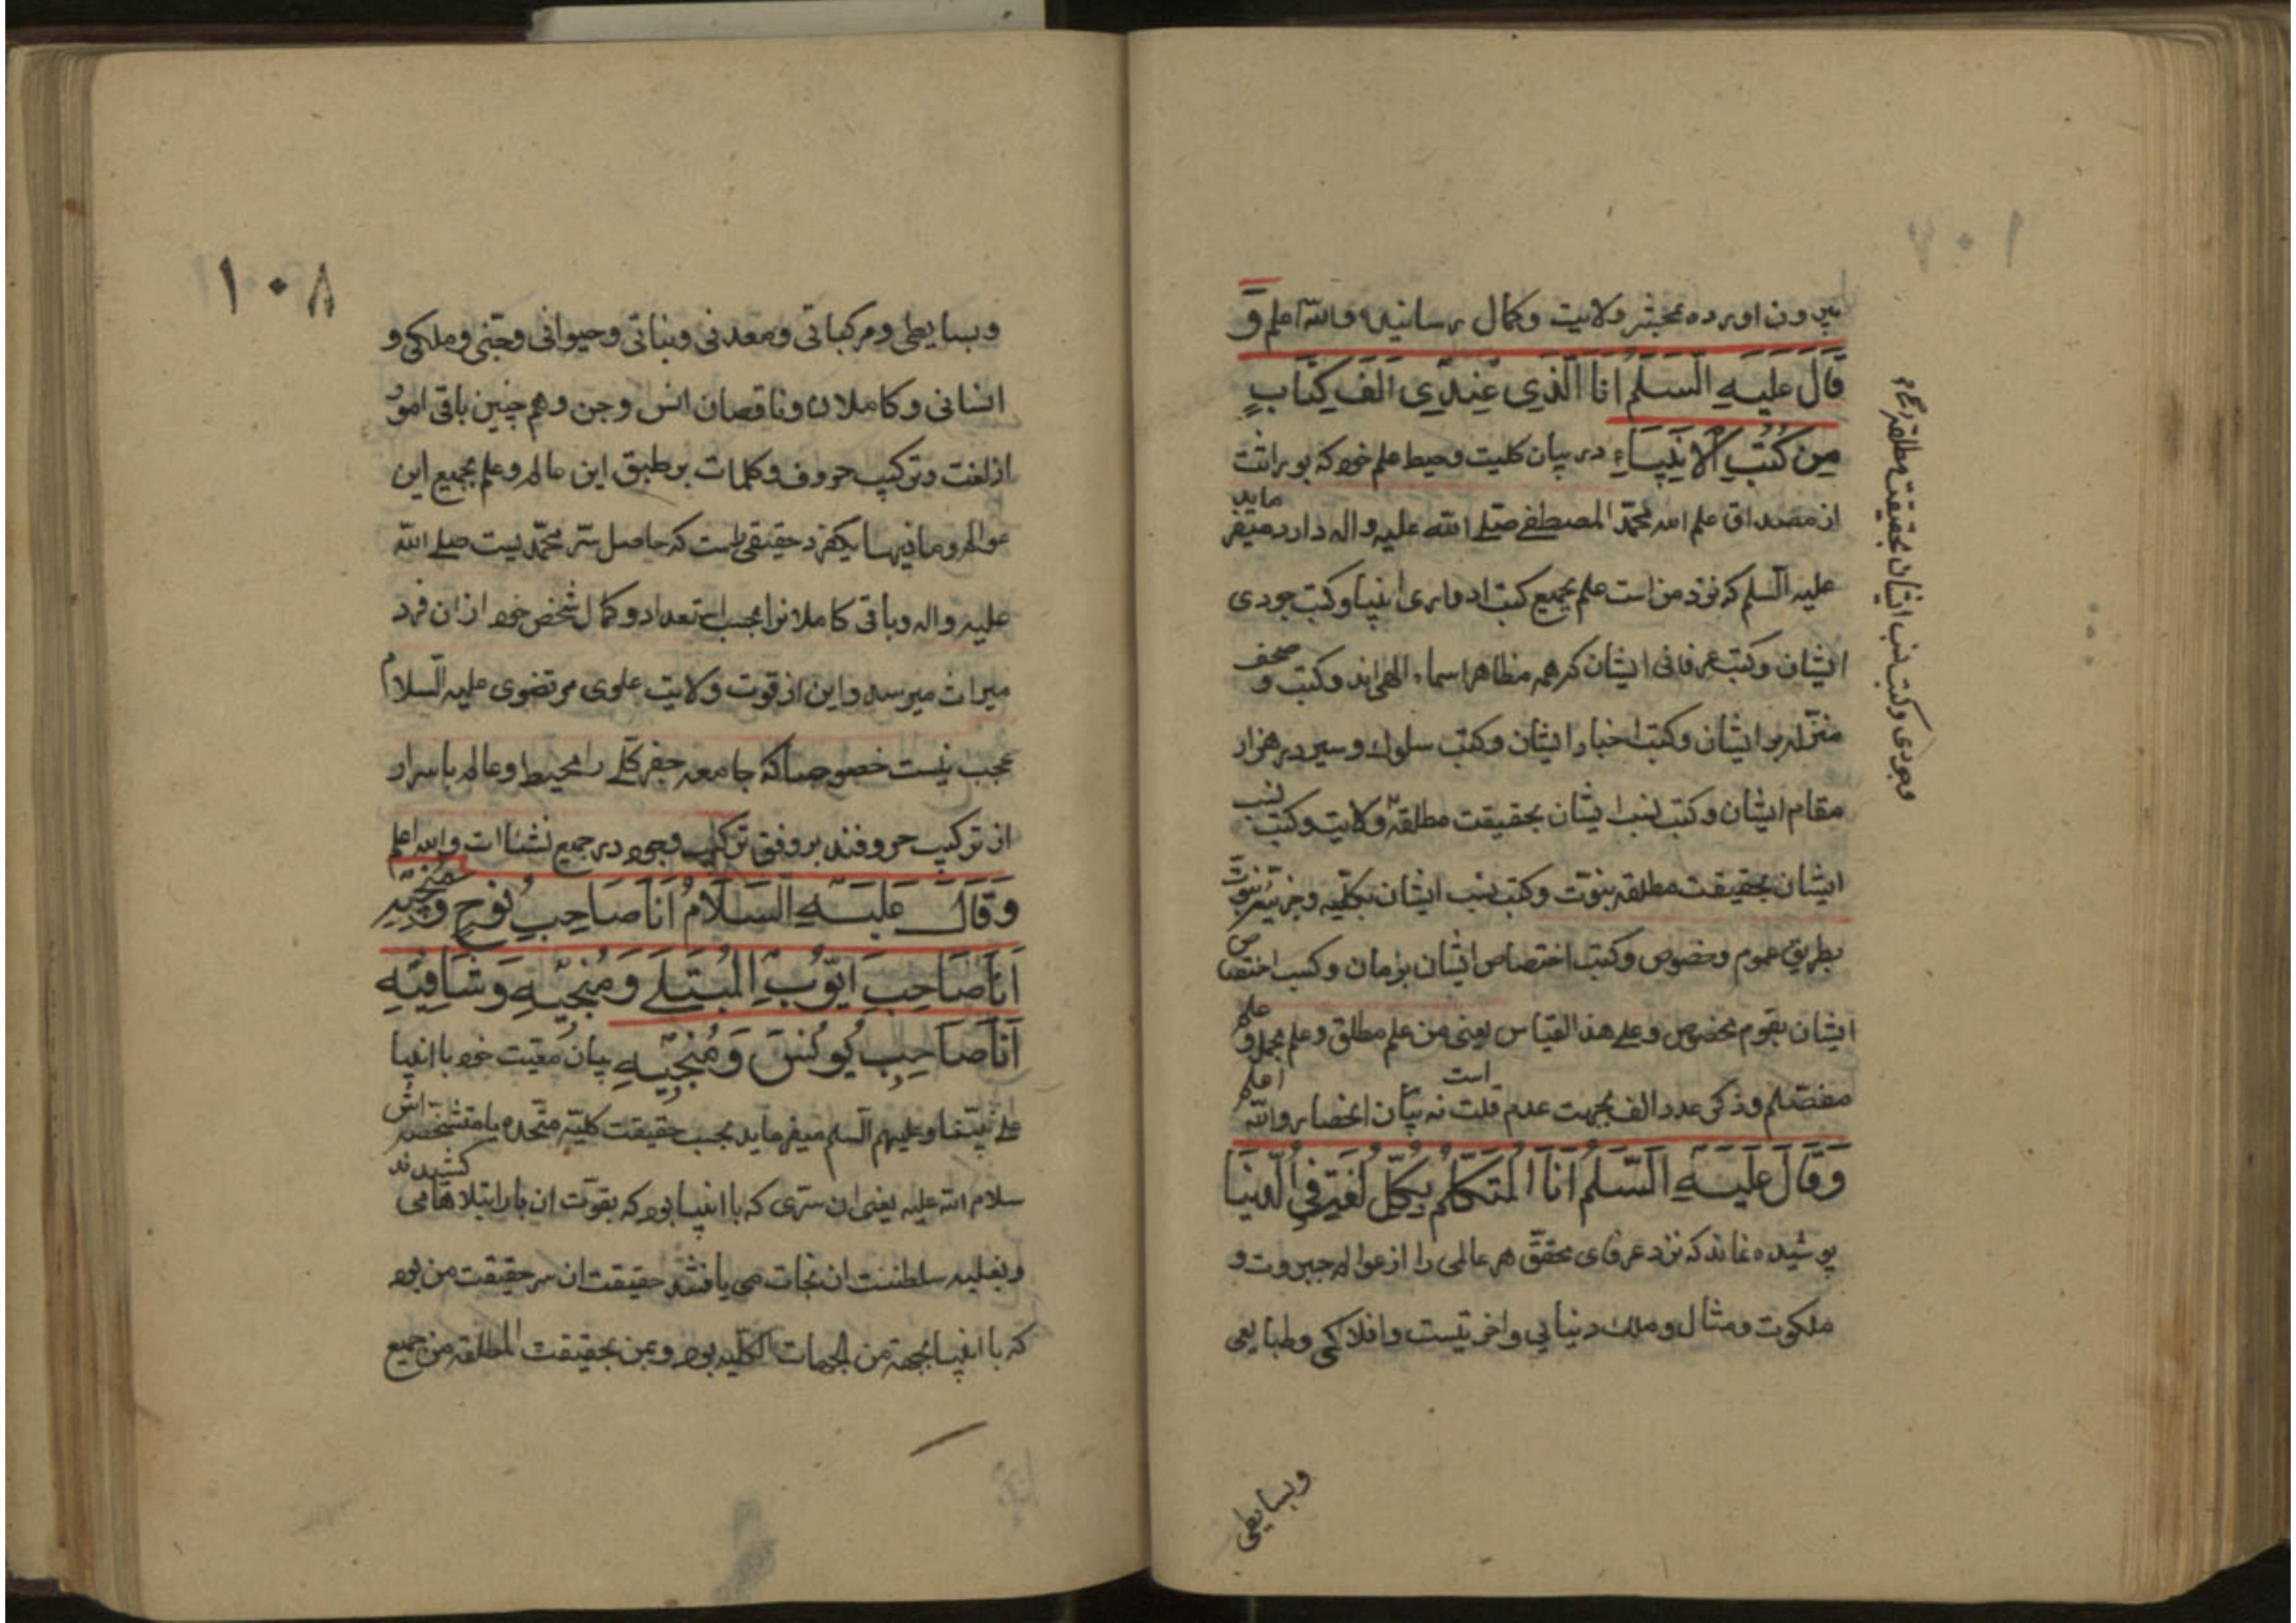 ۱۰۷
بیرون اورده بمحشر ولایت و کمال رسانیده والله اعلم و
قَالَ عَلَیَهِ السَّلَمُ اَنَا الَّذِی عِنْدِی اَلفَ کِتَابٍ
مِن کُتُبِ الْاَنبِیَاءِ در بیان کلیت وحیط علم خود که بوراثت
از مصداق علم الله محمّد المصطفی صلی الله علیه واله دارد میفرماید
علیه السلم که نزد من است علم بجمیع کتب ادواری انبیا و کتب جودی
ایشان و کتب عرفانی ایشان که همه مظاهر اسماء الهی اند و کتب و صحف
منزله بر ایشان و کتب اخبار ایشان و کتب سلوک و سیر در هزار
مقام ایشان و کتب نسب ایشان بحقیقت مطلقهٔ ولایت و کتب نسب
ایشان بحقیقت مطلقه نبوّت و کتب نسب ایشان بکلّیه و جزئیّه نبوّت
بطریق عموم و خصوص و کتب اختصاص ایشان بزمان و کتب اختصاص
ایشان بقوم مخصوص و علی هذا القیاس یعنی من علم مطلق و علم مجمل و علم
مفصّلم و ذکر عدد الف بجهت عدم قلت است نه بیان انحصار والله اعلم
وَقَالَ عَلَیَهِ السَّلَمُ اَنَا الْمُتَکَلِّمُ بِکُلِّ لُغَةٍ فِی الدُّنیَا
پوشیده نماند که نزد عرفای محقّق هر عالمی را از عوالم جبروت و
ملکوت و مثال و ملک دنیایی و اخرتیست و افلاکی و طبایعی
وبسایطی
وجودی و کتب نسب ایشان بحقیقت مطلقه
۱۰۸
وبسایطی ومرکباتی ومعدنی ونباتی وحیوانی وجنّی وملکی و
انسانی و کاملان وناقصان انس وجن وهم چنین باقی امور
از لغت وترکیب حروف وکلمات بر طبق این عالم وعلم بجمیع این
عوالم ومافیها یکفرد حقیقی راست که حاصل سرّ محمّدیست صلی الله
علیه واله وباقی کاملانرا بحسب استعداد وکمال شخص خود از ان فرد
میراث میرسد واین از قوت ولایت علوی مرتضوی علیه السلام
عجب نیست خصوصا که جامعه جفر کلّی را محیط وعالم باسرار
از ترکیب حروفند بر وفق ترکیب وجود در جمیع نشاات والله اعلم
وَقَالَ عَلَیَهِ السَّلَامُ اَنَا صَاحِبُ نُوحٍ وَمُنجِیَهِ
اَنَا صَاحِبُ اَیّوُبِ المُبتَلَی وَمُنجِیَهِ وَشَافِیَهِ
اَنَا صَاحِبُ یُونُسَ وَمُنجِیَهِ بیان معیت خود با انبیا
علی نبیّنا وعلیهم السلم میفرماید بحسب حقیقت کلیّه متّحده با متشخّصه اش
سلام الله علیه یعنی ان سرّی که با انبیا بود که بقوّت ان بار ابتلاها می کشیدند
وبغلبه سلطنت ان نجات می یافتند حقیقت ان سر حقیقت من بود
که با انبیا بجهة من الجهات الکلّیه بود وبمن بحقیقت المطلقه من جمیع